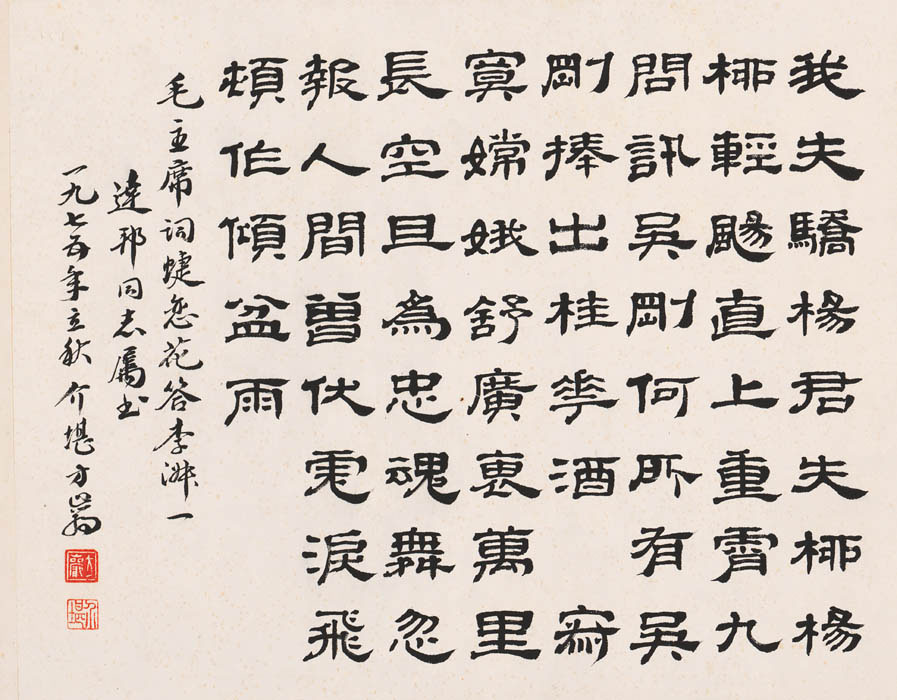 我失驕楊君失桺楊
桺輕颺直上重霄九
問訊吳剛何所有吳
剛捧出桂華酒寂
寞嫦娥舒廣褏萬里
長空且為忠魂舞忽
報人間曾伏虎淚飛
頓作傾盆雨
毛主席詞蝶恋花答李淑一
達邦同志屬書
一九七五年立秋介堪方巖